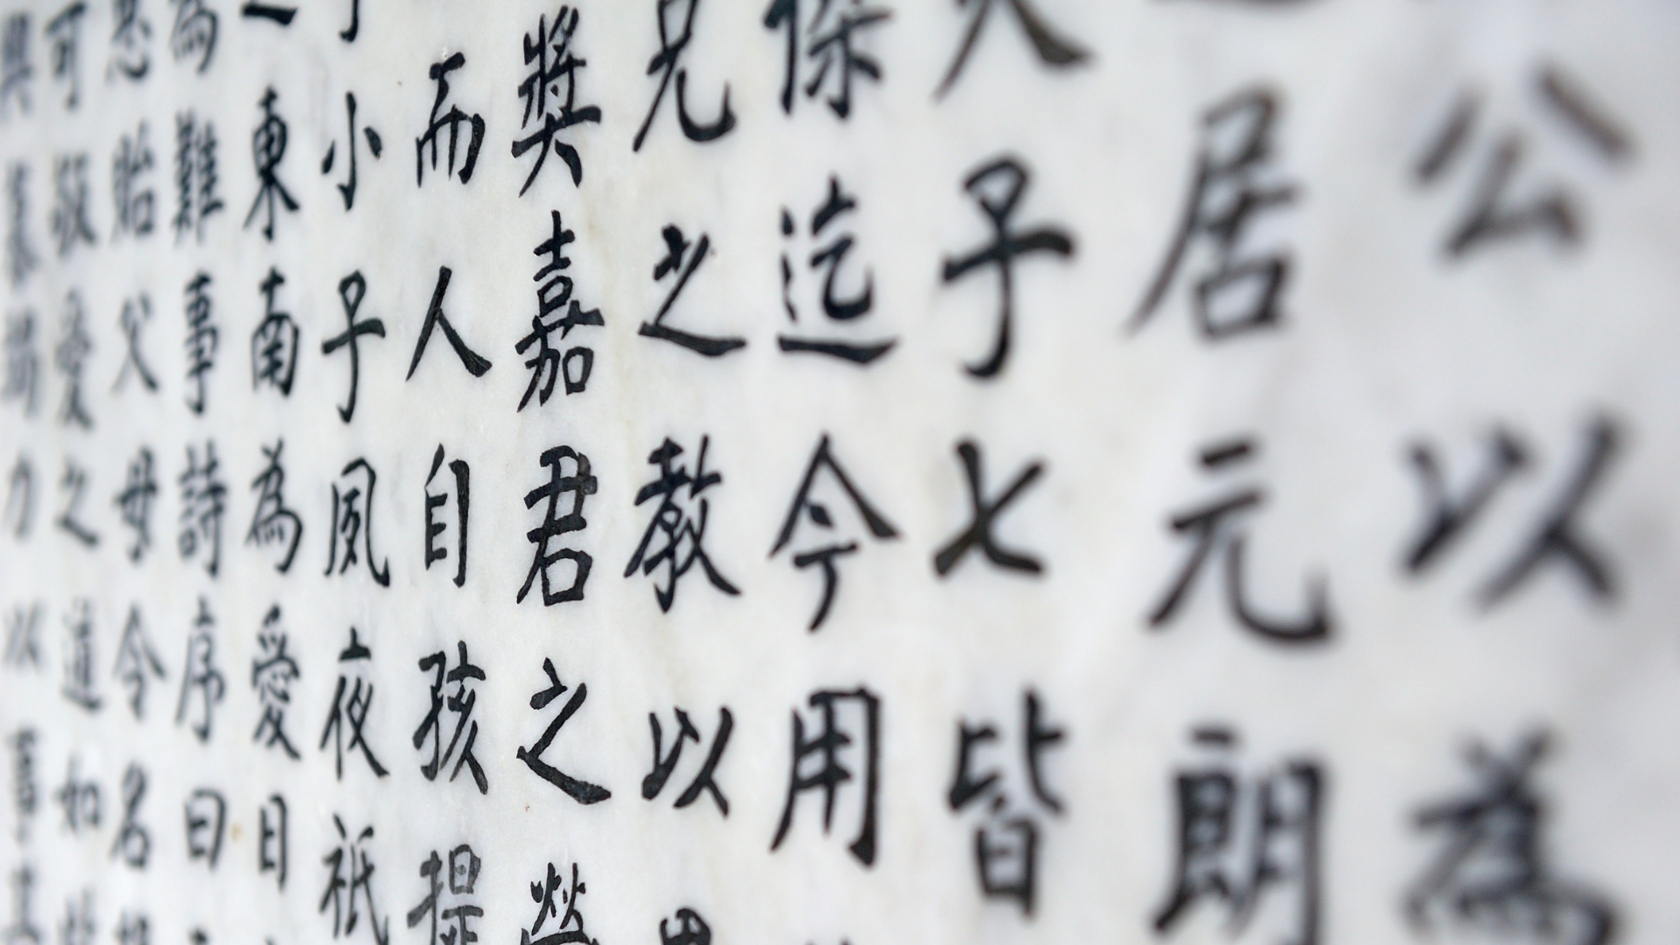 公以為
居元朗
子七皆
傑迄今用
兄之教以
獎嘉君之
而人自孩提
小子夙夜祇
東南為愛日
為難事詩序曰
怠貽父母令名
可敬愛之道如
力以事